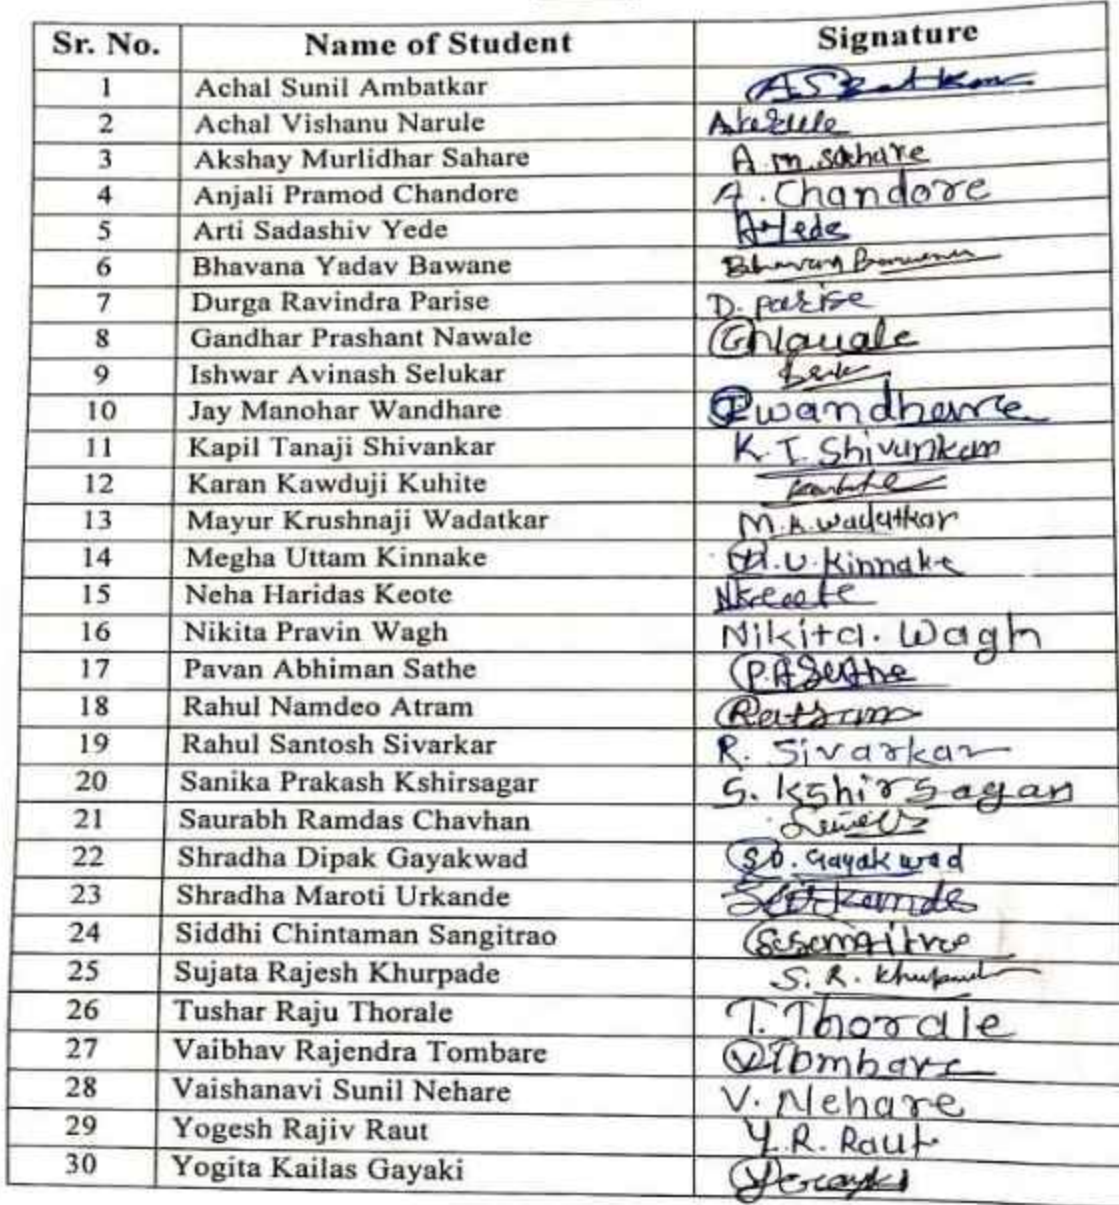 Sr. No. Name of Student Signature
1 Achal Sunil Ambatkar
2 Achal Vishanu Narule
3 Akshay Murlidhar Sahare A.m.sahare
4 Anjali Pramod Chandore A. Chandore
5 Arti Sadashiv Yede A.Yede
6 Bhavana Yadav Bawane
7 Durga Ravindra Parise D. parise
8 Gandhar Prashant Nawale GNawale
9 Ishwar Avinash Selukar
10 Jay Manohar Wandhare
11 Kapil Tanaji Shivankar K.T. Shivankar
12 Karan Kawduji Kuhite
13 Mayur Krushnaji Wadatkar M.K.wadatkar
14 Megha Uttam Kinnake M.U.Kinnake
15 Neha Haridas Keote
16 Nikita Pravin Wagh Nikita. Wagh
17 Pavan Abhiman Sathe P.ASathe
18 Rahul Namdeo Atram
19 Rahul Santosh Sivarkar R. Sivarkar
20 Sanika Prakash Kshirsagar S. Kshirsagar
21 Saurabh Ramdas Chavhan
22 Shradha Dipak Gayakwad S.D. Gayakwad
23 Shradha Maroti Urkande
24 Siddhi Chintaman Sangitrao
25 Sujata Rajesh Khurpade S. R.
26 Tushar Raju Thorale T. Thorale
27 Vaibhav Rajendra Tombare VTombare
28 Vaishanavi Sunil Nehare V. Nehare
29 Yogesh Rajiv Raut Y.R. Raut
30 Yogita Kailas Gayaki